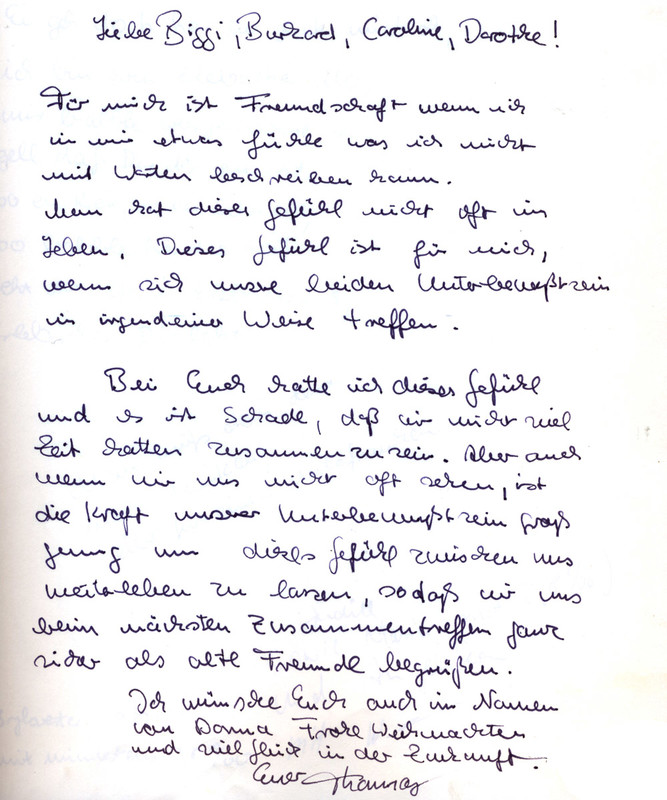 Liebe Biggi, Burkard, Caroline, Dorothe!
Für mich ist Freundschaft wenn ich
in mir etwas fühle was ich nicht
mit Worten beschreiben kann.
Man hat dieses Gefühl nicht oft im
Leben. Dieses Gefühl ist für mich,
wenn sich unsre beiden Unterbewußtsein
in irgendeiner Weise treffen.
Bei Euch hatte ich dieses Gefühl
und es ist Schade, daß wir nicht viel
Zeit hatten zusammen zu sein. Aber auch
wenn wir uns nicht oft sehen, ist
die Kraft unserer Unterbewußtsein groß
genug um dieses Gefühl zwischen uns
weiterleben zu lassen, sodaß wir uns
beim nächsten Zusammentreffen ganz
sicher als alte Freunde begrüßen.
Ich wünsche Euch auch im Namen
von Donna Frohe Weihnachten
und viel Glück in der Zukunft.
Euer Thomas